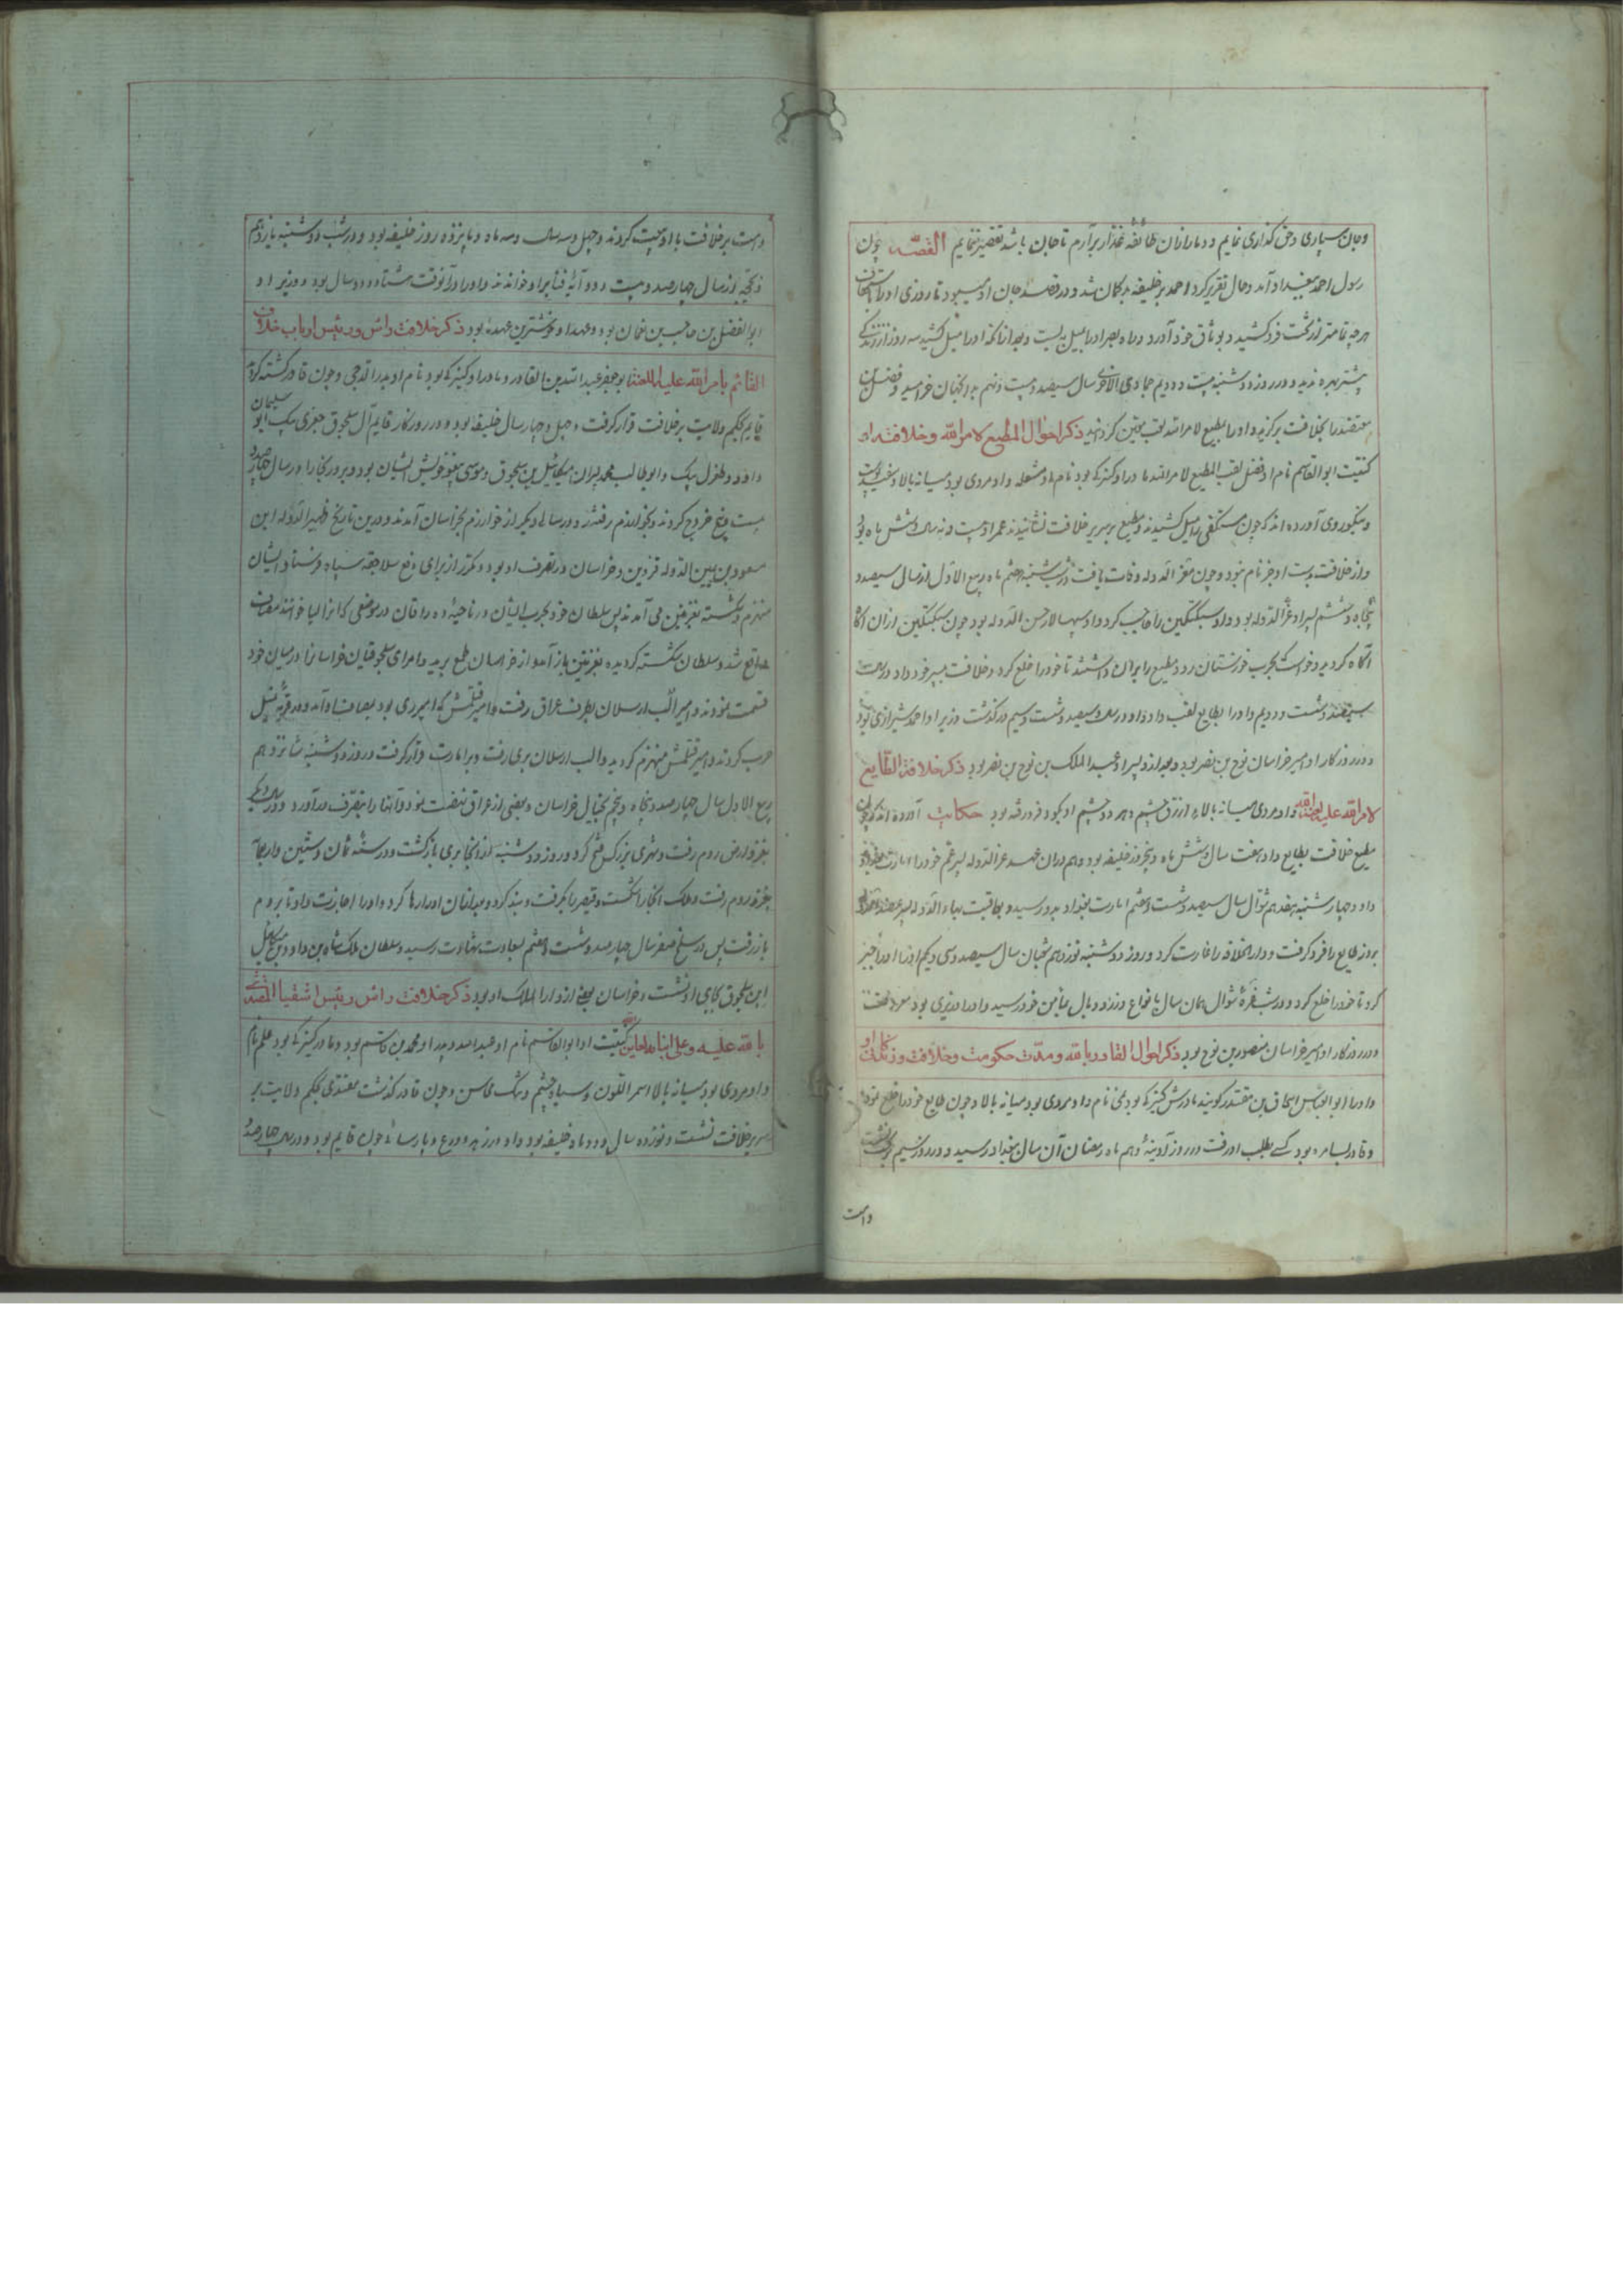 وجان سپاری وحق گذاری نمایم و دمار ازان طائفه غدار برآرم تا جان باشد تقصیر ننمایم القصه چون
رسول احمد ببغداد آمد وحال تقریر کرد احمد بر خلیفه بدگمان شد و در قصد جان او میبود تا روزی او را
هرچه تمامتر از تخت فرو کشید و بوثاق خود آورد و بعد ازانکه او را میل کشید سه روز از زندگی
بیشتر بهره ندید و در روز دوشنبه بیست و دویم جمادی الاخری سال سیصد و بیست و نهم
معتضد را بخلافت برگزید و او را مطیع لامرالله لقب تعیین کردند ذکر احوال المطیع لامرالله وخلافت او
کنیت ابو القاسم نام او فضل لقب المطیع لامرالله مادر او کنیزکی بود نام او مشعله و او مردی بود میانه بالا و سفید پوست
و نیکو روی آورده اند که چون مستکفی را میل کشیدند و مطیع بر سریر خلافت نشانیدند عمر او بیست و نه سال و شش ماه بود
و از خلافت بدست او جز نام نبود و چون معز الدوله وفات یافت در شب شنبه هشتم ماه ربیع الاول از سال سیصد و
پنجاه و ششم پسر او عز الدوله بود و او سبکتکین را حاجب کرد و او سپهسالار حسن الدوله بود چون سبکتکین ازان
آگاه گردید و خواست بحرب خوزستان رود مطیع را بران داشتند تا خود را خلع کرد و خلافت بپسر خود داد در سنه
سیصد و شصت و دویم و او را بطایع لقب داد و او در سال سیصد و شصت و سیم درگذشت وزیر او احمد شیرازی بود
و در روزگار او امیر خراسان نوح بن نصر بود و بعد ازو پسر او عبد الملک بن نوح بن نصر بود ذکر خلافت الطایع
لامرالله علیه لعنة الله و او مردی میانه بالا و ازرق چشم و هر دو چشم او کبود فرو رفته بود حکایت آورده اند که چون
مطیع خلافت بطایع داد هفت سال و شش ماه و پنجروز خلیفه بود و هم دران عهد عز الدوله پسر عم خود را امارت
داد و چهارشنبه هفدهم شوال سال سیصد و شصت و هفتم امارت بغداد بدو رسید و بعاقبت بهاء الدوله پسر عضد
بروز طایع را فرو گرفت و دار الخلافه را غارت کرد و روز دوشنبه نوزدهم شعبان سال سیصد و سی و یکم او را
کرد تا خود را خلع کرد و در شب غره شوال همان سال بانواع وزر و وبال بمأمن خود رسید و او را وزیری بود
و در روزگار او امیر خراسان منصور بن نوح بود ذکر احوال القادر بالله و مدت حکومت وخلافت وزندگانی او
و او را ابو العباس اسحاق بن مقتدر گویند مادرش کنیزکی بود نام و او مردی بود میانه بالا و چون طایع خود را خلع نمود
و قادر بسامره بود کسی بطلب او رفت در روز آدینه دهم ماه رمضان آن سال ببغداد رسید و در روز سیم
وامت
وامت بر خلافت با او بیعت کردند و چهل و سه سال و سه ماه و پانزده روز خلیفه بود و در شب دوشنبه یازدهم
ذیحجه از سال چهارصد و بیست و دو آیه فنا بر او خواندند و او را در آنوقت هشتاد و دو سال بود و وزیر او
ابو الفضل بن حاجب بن نعمان بود و عهد او خوشترین عهدها بود ذکر خلافت رأس ورئیس ارباب خلاف
القائم بامرالله علیه اللعنة ابو جعفر عبد الله بن القادر و مادر او کنیزکی بود نام او بدر الدجی و چون قادر کشته گردید
قایم بحکم ولایت بر خلافت قرار گرفت و چهل و چهار سال خلیفه بود و در روزگار قایم آل سلجوق جغری بیک ابو سلیمان
داود و طغرل بیک و ابو طالب محمد پسران میکائیل بن سلجوق و موسی بیغو خویش ایشان بود و بر در بخارا در سال چهارصد و
بیست و پنج خروج کردند و بخوارزم رفتند و در سالی دیگر از خوارزم بخراسان آمدند و درین تاریخ ظهیر الدوله ابن
مسعود بن یمین الدوله قزوین و خراسان در تصرف او بود و مکرر از برای دفع سلاجقه سپاه فرستاد و ایشان
منهزم و شکسته بغزنین می آمدند پس سلطان خود بحرب ایشان در ناحیه دندانقان در موضعی که آنرا خوانند مصاف
واقع شد و سلطان شکسته گردیده بغزنین باز آمد و از خراسان طمع برید و امرای سلجوقیان خراسان را در میان خود
قسمت نمودند و امیر الب ارسلان بطرف عراق رفت و امیر قتلمش که امیر ری بود بمصاف او آمد و در قریه
حرب کردند و امیر قتلمش منهزم گردید و الب ارسلان بری رفت و بر امارت قرار گرفت و روز دوشنبه شانزدهم
ربیع الاول سال چهارصد و پنجاه و پنجم بخیال خراسان و بعضی از عراق نهضت نمود و آنها را بتصرف درآورد و در سال دیگر
بغزو ارض روم رفت و شهری بزرگ فتح کرد و روز دوشنبه ازآنجا بری بازگشت و در سنه ثمان و ستین واربعمأ
بغزو روم رفت و ملک انجا را شکست و قیصر را بگرفت و بند کرد و بعد ازان او را رها کرد و او را اجازت داد تا بروم
باز رفت پس در سلخ صفر سال چهارصد و شصت و هشتم بسعادت شهادت رسید و سلطان ملک شاه بن داود بن میکائیل
ابن سلجوق بجای او نشست و خراسان بعضی ازو دار الملک او بود ذکر خلافت رأس ورئیس اشقیا المقتدی
بالله علیه وعلی ابنائه لعاین الله کنیت او ابو القاسم نام او عبد الله و پدر او محمد بن قاسم بود و مادر کنیزکی بود علم نام
و او مردی بود میانه بالا اسمر اللون و سیاه چشم و تنک محاسن و چون قادر گذشت مقتدی بحکم ولایت بر
سریر خلافت نشست و نوزده سال و دو ماه خلیفه بود و او در زهد و ورع و پارسائی چون قایم بود و در سال چهارصد